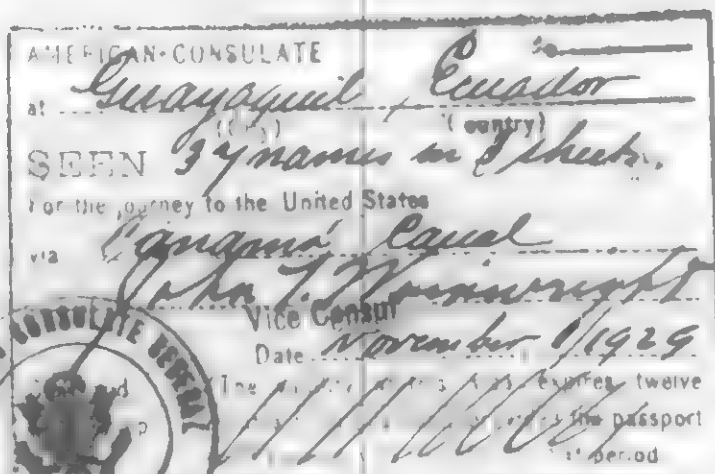 AMERICAN CONSULATE
at Guayaquil, Ecuador
(City) (Country)
SEEN 37 names in sheets.
For the journey to the United States
via Panamá Canal
John T. Wainwright
Vice Consul
Date November 1/1929
CONSULATE GENERAL
The expires twelve
the passport
period